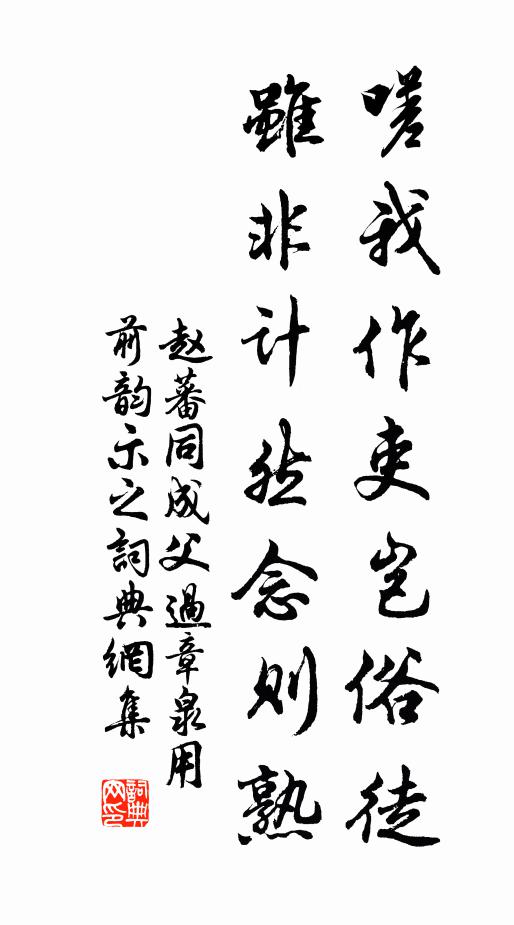 嗟我作吏岂俗徒
雖非计然念则熟
赵蕃同成父過章泉用
前韵示之詞典網集
詞典
网印